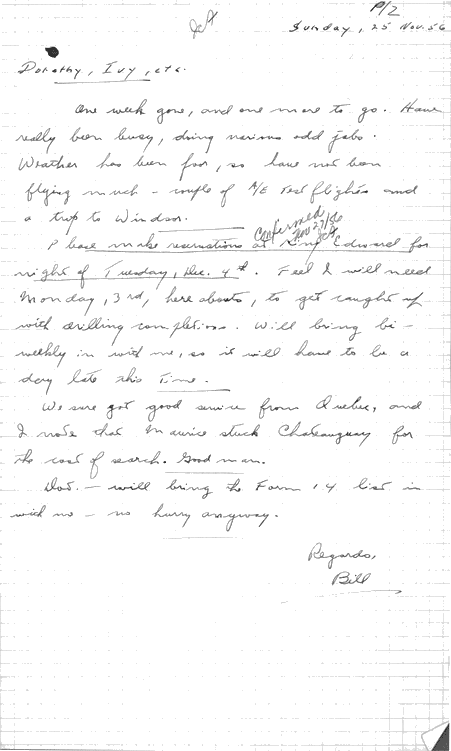 P/2
Sunday, 25 Nov. 56
Dorothy, Ivy, etc.
One week gone, and one more to go. Have
really been busy, doing various odd jobs.
Weather has been poor, so have not been
flying much - couple of A/E Test flights and
a trip to Windsor.
Confirmed
Nov 27/56
Please make reservations at King Edward for
night of Tuesday, Dec. 4th. Feel I will need
Monday, 3rd, here abouts, to get caught up
with drilling completions. Will bring bi-
weekly in with me, so it will have to be a
day late this time.
We sure got good service from Quebec, and
I note that Maurice stuck Chateauguay for
the cost of search. Good man.
Dot. - will bring the Form 14 list in
with me - no hurry anyway.
Regards,
Bill